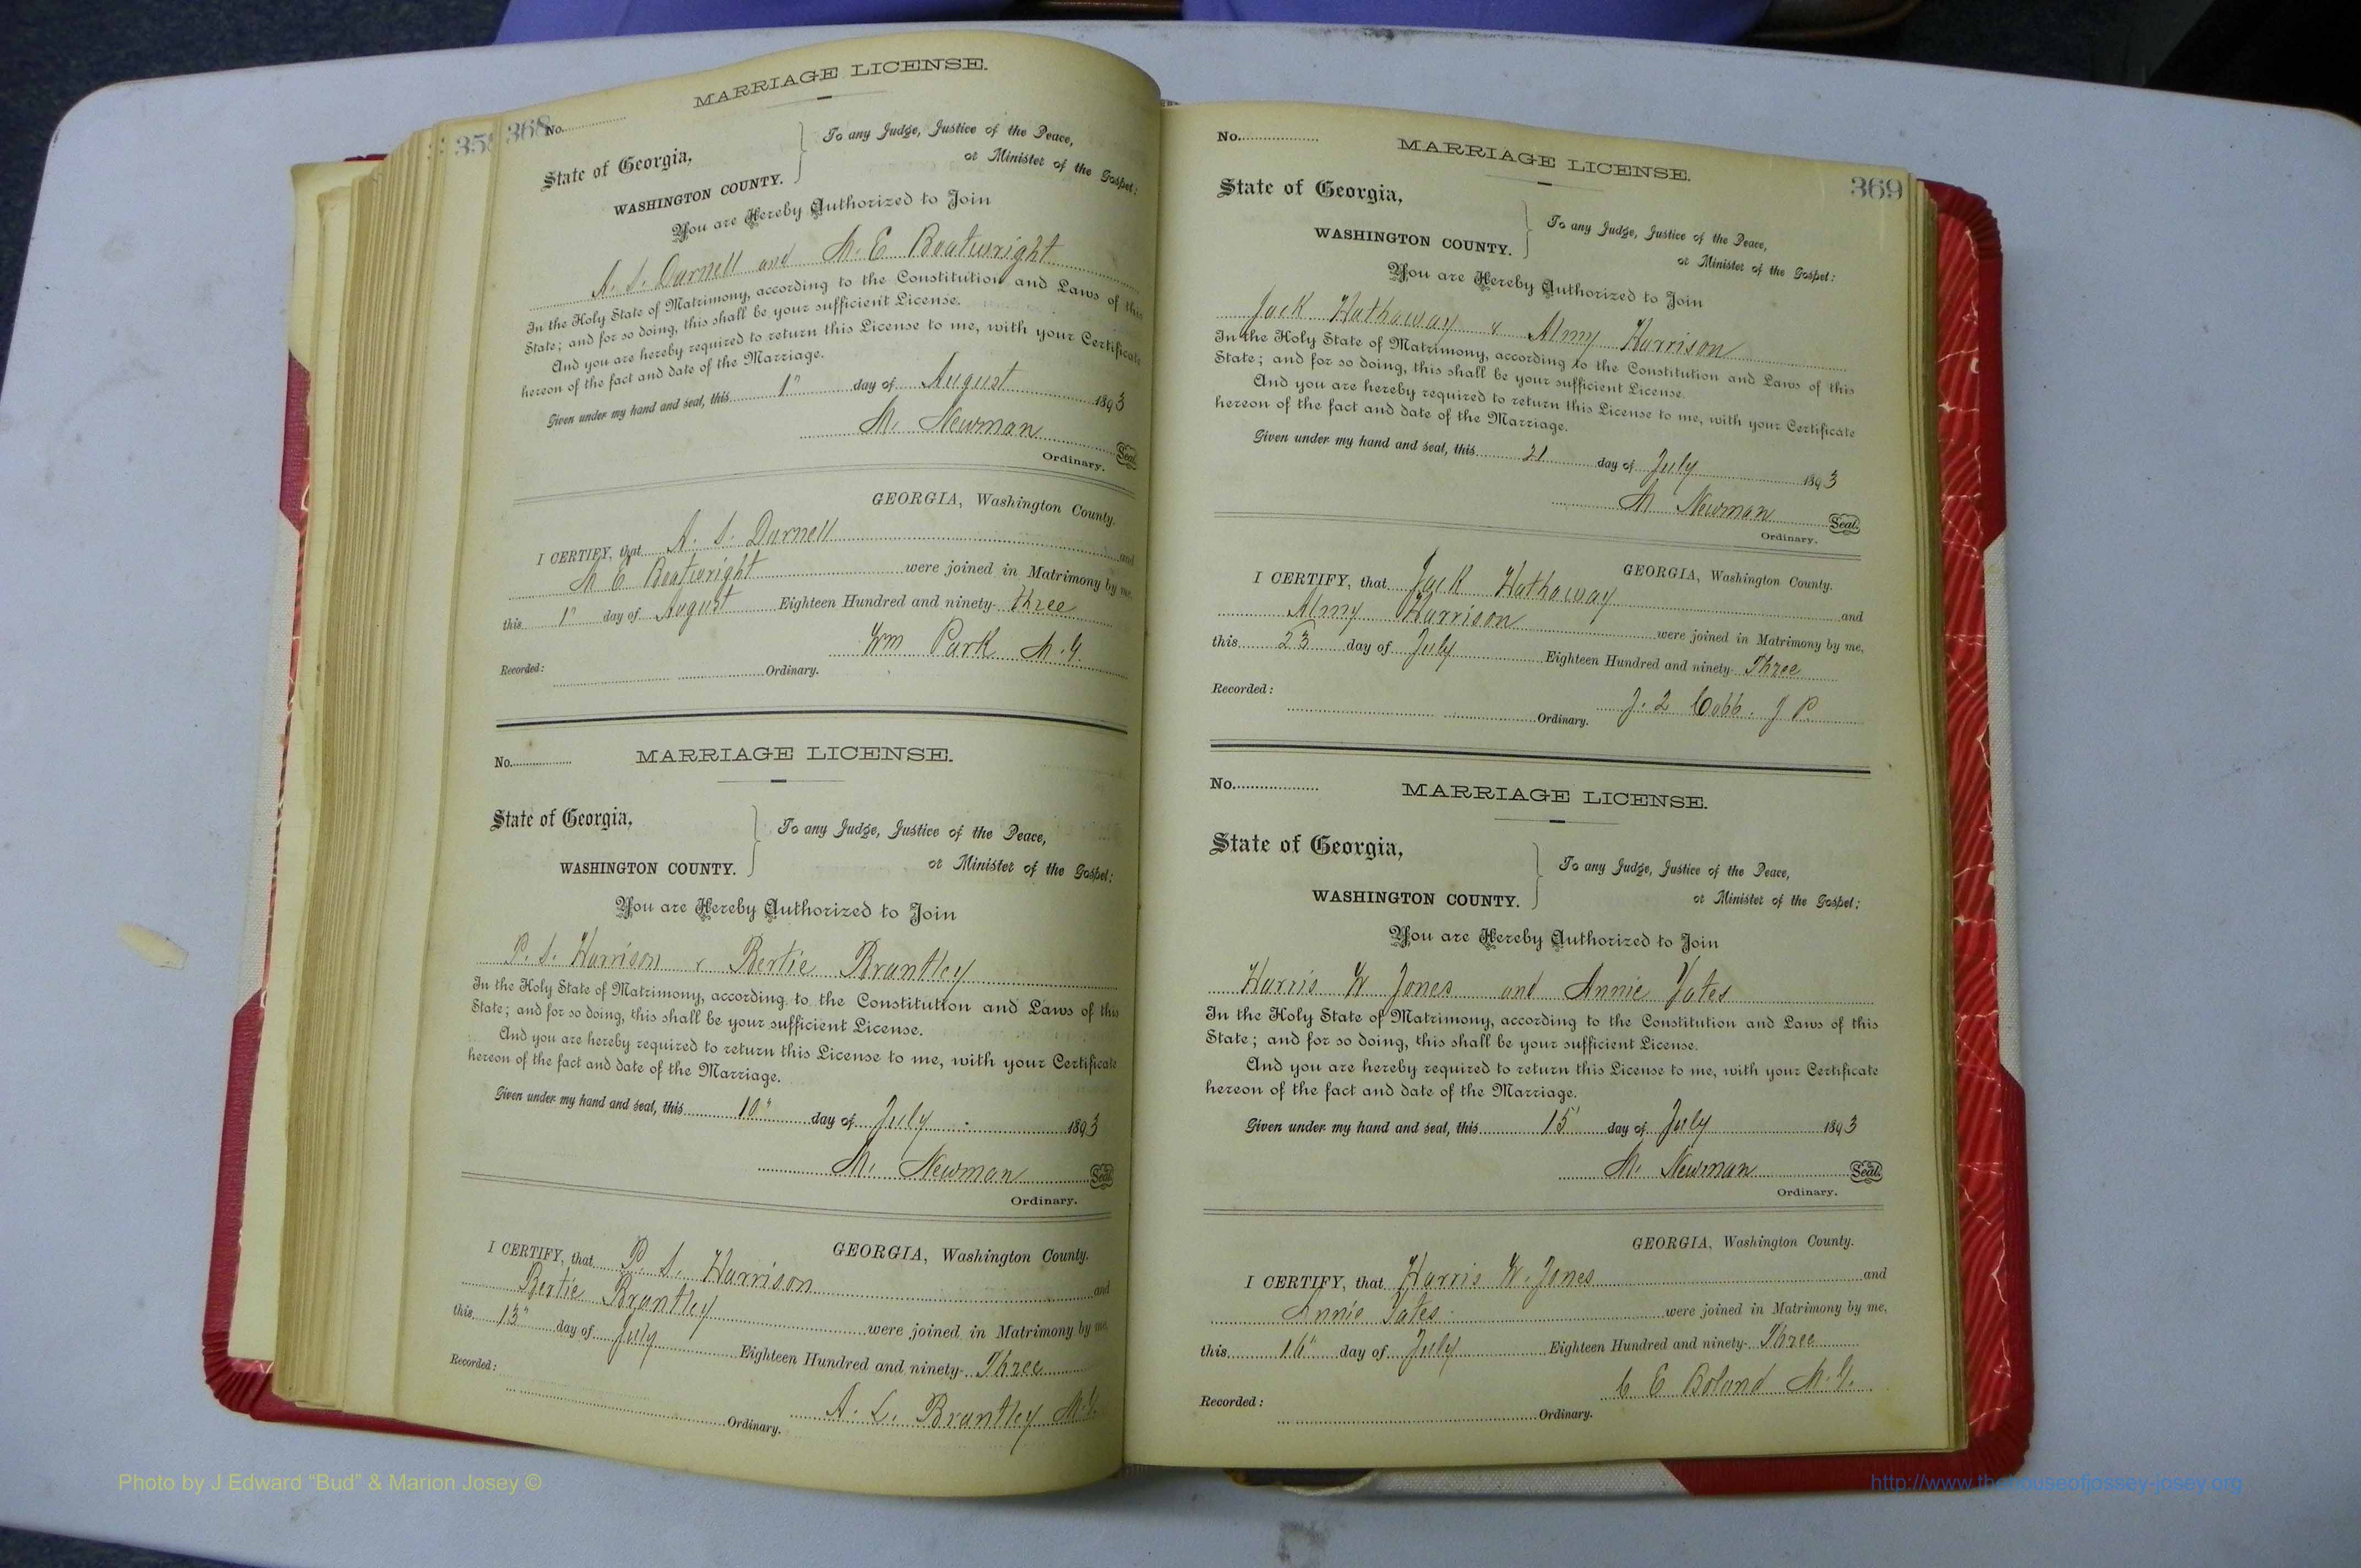 358 368
MARRIAGE LICENSE.
No.
State of Georgia,
WASHINGTON COUNTY.
To any Judge, Justice of the Peace,
or Minister of the Gospel:
You are Hereby Authorized to Join
A. S. Darnell and M. E Boatwright
In the Holy State of Matrimony, according to the Constitution and Laws of this
State; and for so doing, this shall be your sufficient License.
And you are hereby required to return this License to me, with your Certificate
hereon of the fact and date of the Marriage.
Given under my hand and seal, this 1" day of August 1893
M. Newman Seal
Ordinary.
GEORGIA, Washington County.
I CERTIFY, that A. S. Darnell and
M E Boatwright were joined in Matrimony by me,
this 1" day of August Eighteen Hundred and ninety-three
Wm Park M.G.
Recorded: Ordinary.
No. MARRIAGE LICENSE.
State of Georgia,
WASHINGTON COUNTY.
To any Judge, Justice of the Peace,
or Minister of the Gospel:
You are Hereby Authorized to Join
P. S. Harrison & Bertie Brantley
In the Holy State of Matrimony, according to the Constitution and Laws of this
State; and for so doing, this shall be your sufficient License.
And you are hereby required to return this License to me, with your Certificate
hereon of the fact and date of the Marriage.
Given under my hand and seal, this 10" day of July 1893
M. Newman Seal
Ordinary.
GEORGIA, Washington County.
I CERTIFY, that P. S. Harrison and
Bertie Brantley were joined in Matrimony by me,
this 13" day of July Eighteen Hundred and ninety-Three
A. L. Brantley M.G.
Recorded: Ordinary.
No. MARRIAGE LICENSE. 369
State of Georgia,
WASHINGTON COUNTY.
To any Judge, Justice of the Peace,
or Minister of the Gospel:
You are Hereby Authorized to Join
Jack Hathaway & Almy Harrison
In the Holy State of Matrimony, according to the Constitution and Laws of this
State; and for so doing, this shall be your sufficient License.
And you are hereby required to return this License to me, with your Certificate
hereon of the fact and date of the Marriage.
Given under my hand and seal, this 21 day of July 1893
M Newman Seal.
Ordinary.
GEORGIA, Washington County.
I CERTIFY, that Jack Hathaway and
Almy Harrison were joined in Matrimony by me,
this 23 day of July Eighteen Hundred and ninety-Three
J. Cobb. J P.
Recorded: Ordinary.
No. MARRIAGE LICENSE.
State of Georgia,
WASHINGTON COUNTY.
To any Judge, Justice of the Peace,
or Minister of the Gospel:
You are Hereby Authorized to Join
Harris W Jones and Annie Yates
In the Holy State of Matrimony, according to the Constitution and Laws of this
State; and for so doing, this shall be your sufficient License.
And you are hereby required to return this License to me, with your Certificate
hereon of the fact and date of the Marriage.
Given under my hand and seal, this 15" day of July 1893
M. Newman Seal.
Ordinary.
GEORGIA, Washington County.
I CERTIFY, that Harris W. Jones and
Annie Yates were joined in Matrimony by me,
this 16" day of July Eighteen Hundred and ninety-Three
C E Boland M.G.
Recorded: Ordinary.
Photo by J Edward “Bud” & Marion Josey ©
http://www.thehouseofjossey-josey.org